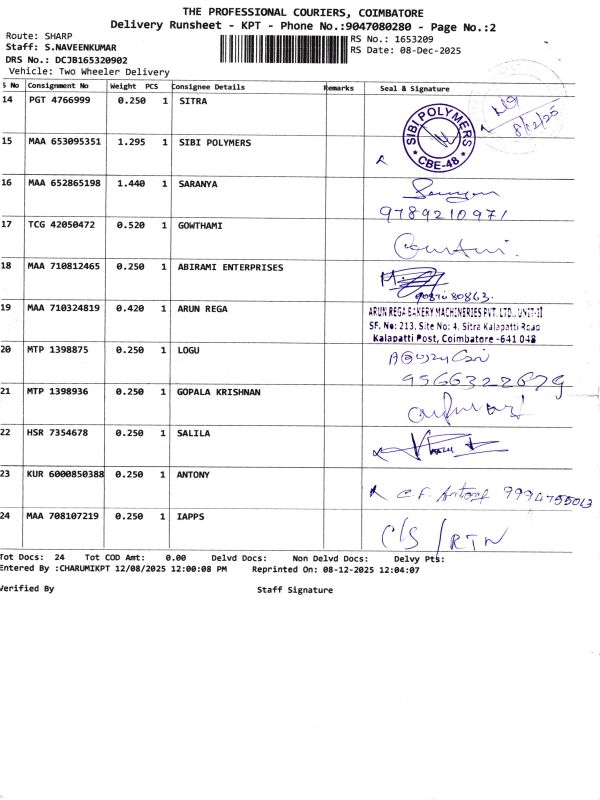 THE PROFESSIONAL COURIERS, COIMBATORE
Delivery Runsheet - KPT - Phone No.:9047080280 - Page No.:2
Route: SHARP
RS No.: 1653209
Staff: S.NAVEENKUMAR
RS Date: 08-Dec-2025
DRS No.: DCJB165320902
Vehicle: Two Wheeler Delivery
S No Consignment No Weight PCS Consignee Details Remarks Seal & Signature
14 PGT 4766999 0.250 1 SITRA
8/12/25
15 MAA 653095351 1.295 1 SIBI POLYMERS
SIBI POLYMERS
CBE-48
16 MAA 652865198 1.440 1 SARANYA
9789210971
17 TCG 42050472 0.520 1 GOWTHAMI
18 MAA 710812465 0.250 1 ABIRAMI ENTERPRISES
9087080863.
19 MAA 710324819 0.420 1 ARUN REGA
ARUN REGA BAKERY MACHINERIES PVT. LTD., UNIT-II
SF. No: 213, Site No: 4, Sitra Kalapatti Road
Kalapatti Post, Coimbatore - 641 048
20 MTP 1398875 0.250 1 LOGU
9566322679
21 MTP 1398936 0.250 1 GOPALA KRISHNAN
22 HSR 7354678 0.250 1 SALILA
23 KUR 6000850388 0.250 1 ANTONY
C.F. Antony
24 MAA 708107219 0.250 1 IAPPS
C/S /RTN
Tot Docs: 24 Tot COD Amt: 0.00 Delvd Docs: Non Delvd Docs: Delvy Pts:
Entered By :CHARUMIKPT 12/08/2025 12:00:08 PM Reprinted On: 08-12-2025 12:04:07
Verified By Staff Signature